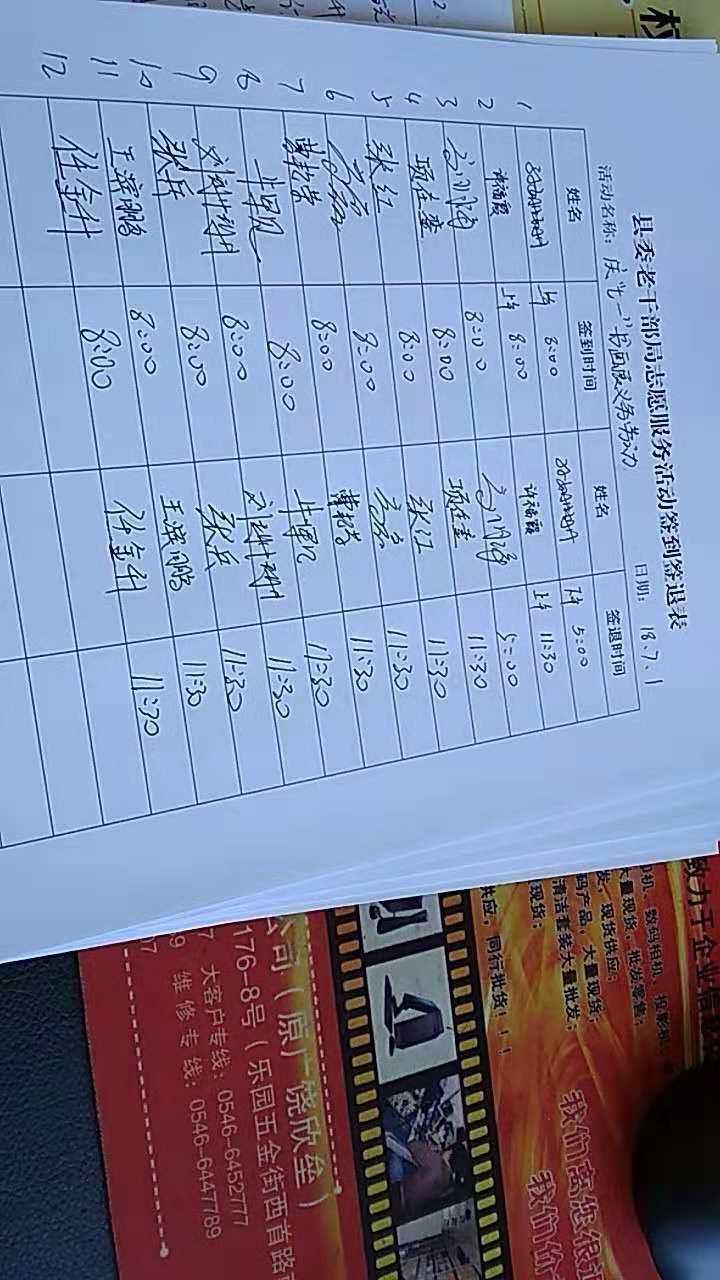 县委老干部局志愿服务活动签到签退表
活动名称：庆"七一"书画展义务劳动 日期：18.7.1
姓名 签到时间 姓名 签退时间
1 上午 8:00 下午 5:00
2 许福霞 上午 8:00 许福霞 上午 11:30
3 8:00 5:00
4 项佳奎 8:00 项佳奎 11:30
5 张红 8:00 张红 11:30
6 8:00 11:30
7 8:00 11:30
8 8:00 11:30
9 刘 8:00 刘 11:30
10 张兵 8:00 张兵 11:30
11 王滨鹏 8:00 王滨鹏 11:30
12 任金升 8:00 任金升 11:30
致力于企业
数码相机、投影机
大量现货，批发零售；
发，现货供应；
码产品，大量现货；
清洁套装大量批发；
现货；
供应，同行批货！！
我们离您很
我们价
公司（原广饶欣垒）
176-8号（乐园五金街西首路
大客户专线：0546-6452777
维修专线：0546-6447789